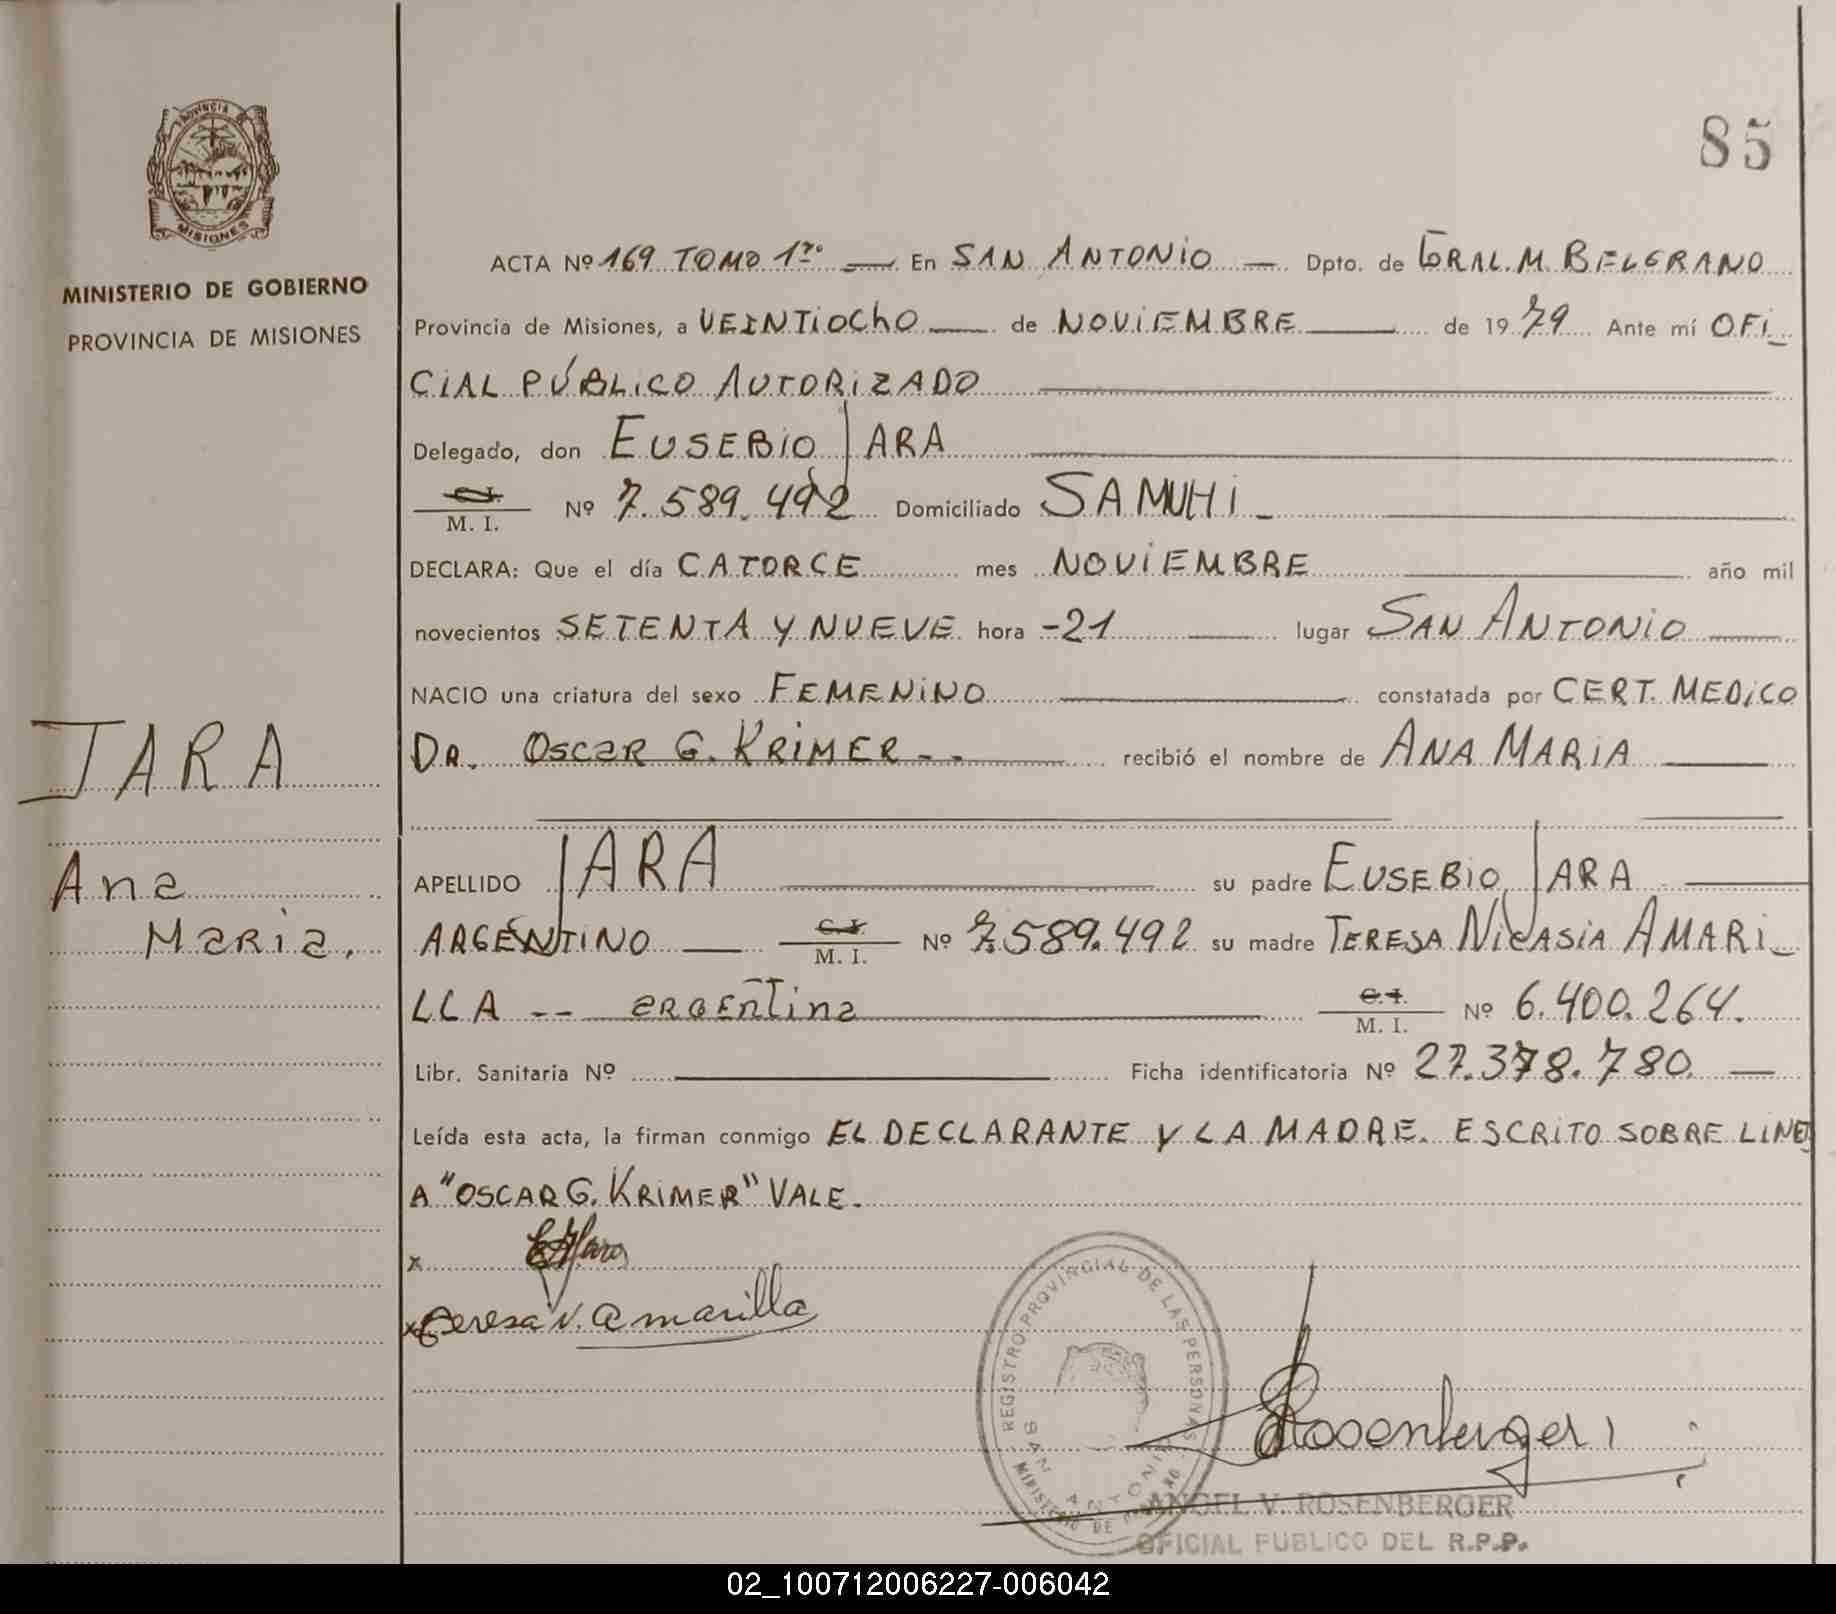 PROVINCIA
MISIONES
MINISTERIO DE GOBIERNO
PROVINCIA DE MISIONES
JARA
Ana
Maria.
85
ACTA Nº 169 TOMO 1ro — En SAN ANTONIO — Dpto. de GRAL. M. BELGRANO
Provincia de Misiones, a VEINTIOCHO — de NOVIEMBRE — de 1979 Ante mí OFI_
CIAL PÚBLICO AUTORIZADO
Delegado, don EUSEBIO JARA
C.I.
M. I. Nº 7.589.492 Domiciliado SAMUHI_
DECLARA: Que el día CATORCE mes NOVIEMBRE año mil
novecientos SETENTA Y NUEVE hora -21 lugar SAN ANTONIO
NACIO una criatura del sexo FEMENINO constatada por CERT. MEDICO
DR. OSCAR G. KRIMER -- recibió el nombre de ANA MARIA
APELLIDO JARA su padre EUSEBIO JARA
ARGENTINO — C.I.
M. I. Nº 7.589.492 su madre TERESA NICASIA AMARI_
LLA -- argentina C.I.
M. I. Nº 6.400.264.
Libr. Sanitaria Nº — Ficha identificatoria Nº 27.378.780. —
Leída esta acta, la firman conmigo EL DECLARANTE Y LA MADRE. ESCRITO SOBRE LINE
A "OSCAR G. KRIMER" VALE.
x
x Teresa N. Amarilla
REGISTRO PROVINCIAL DE LAS PERSONAS
SAN ANTONIO
MINISTERIO DE GOBIERNO
Rosenberger
ANGEL V. ROSENBERGER
OFICIAL PUBLICO DEL R.P.P.
02_100712006227-006042